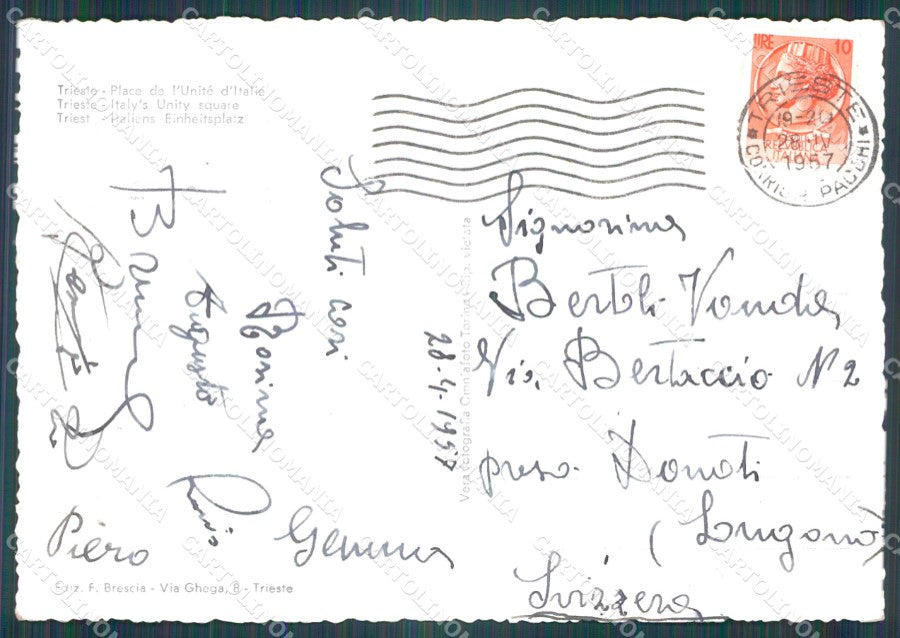 Trieste - Place de l'Unité d'Italie
Trieste - Italy's Unity square
Triest - Italiens Einheitsplatz
LIRE 10
TRIESTE
19-20
28 IV
1957
CORRISP. PACCHI
Saluti cari
Rosina
Augusto
Piero
Gemma
28-4-1957
Vera fotografia Omniafoto Torino - Rip. vietata
Signorina
Bertoli Vanda
Via Bertaccio N 2
preso Donati
(Lugano)
Svizzera
Ediz. F. Brescia - Via Ghega, 8 - Trieste
CARTOLINOMANIA